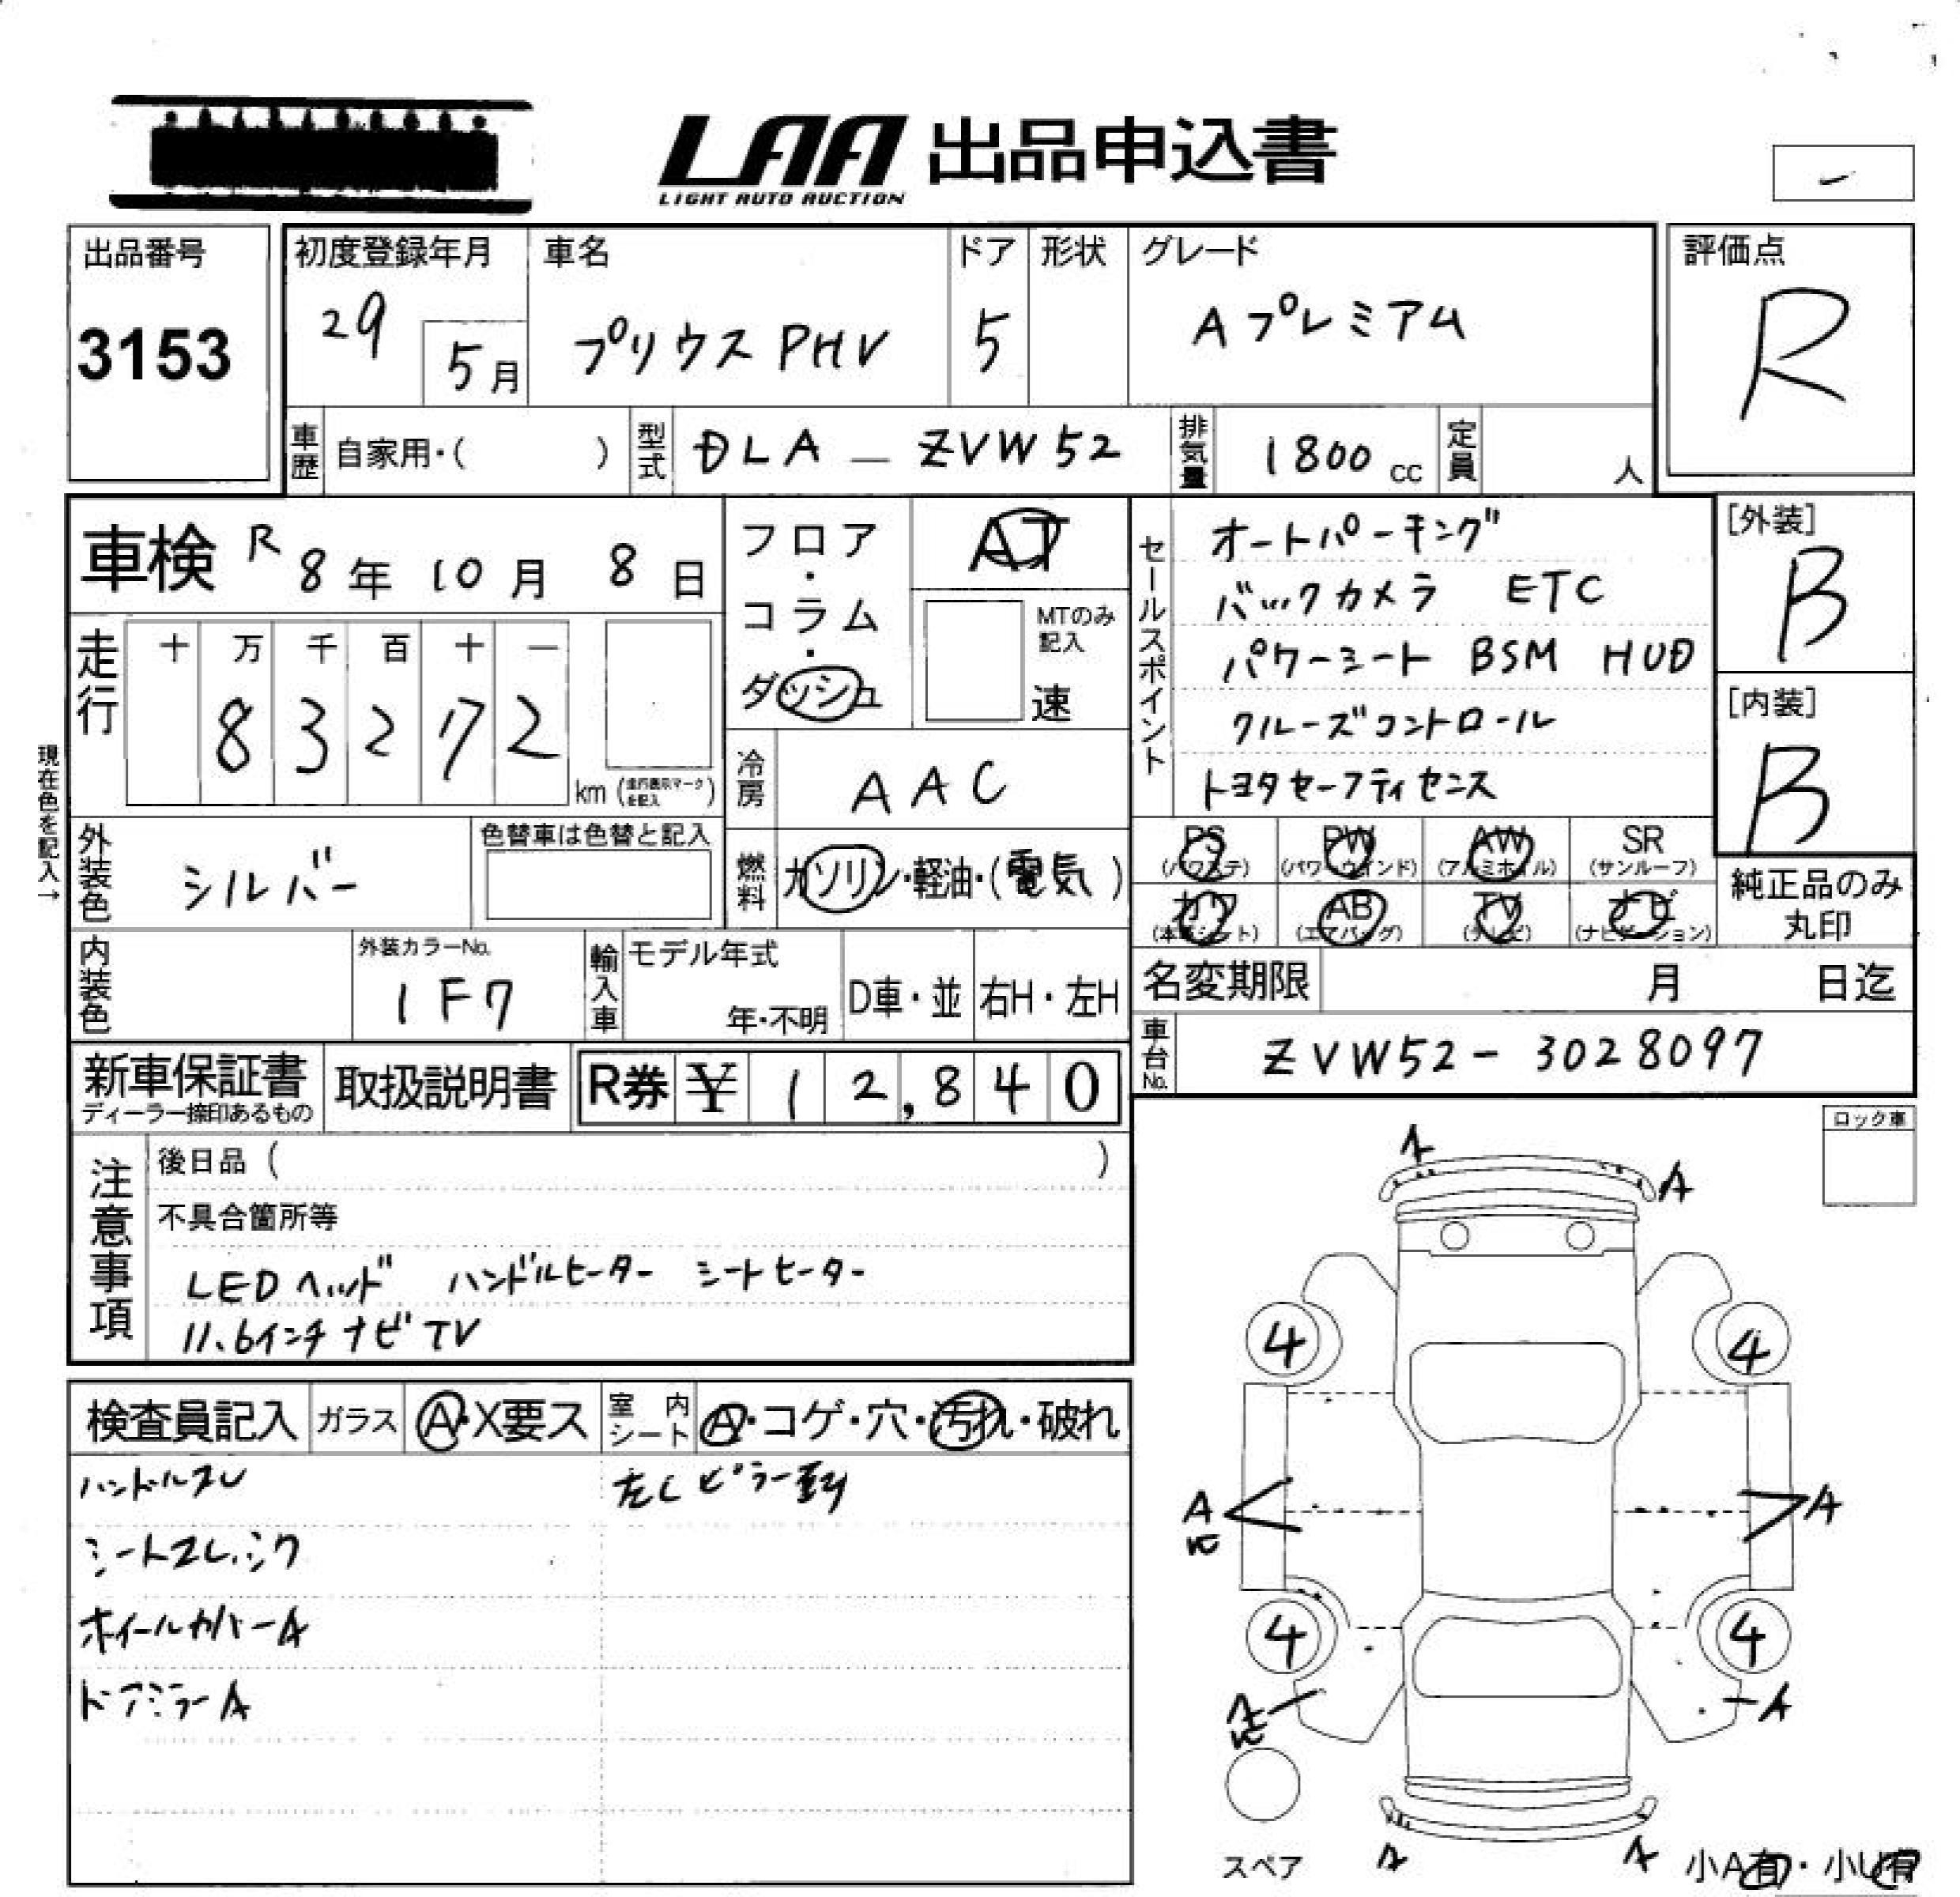 LAA 出品申込書
LIGHT AUTO AUCTION
出品番号
3153
初度登録年月
29
5月
車名
プリウス PHV
ドア
5
形状
グレード
Aプレミアム
評価点
R
車歴
自家用・( )
型式
DLA - ZVW52
排気量
1800 cc
定員
人
車検 R 8年 10月 8日
走行
十 万 千 百 十 一
8 3 2 7 2
km (走行表示マークを記入)
現在色を記入→
フロア・コラム・ダッシュ
AT
MTのみ記入
速
冷房
AAC
燃料
ガソリン・軽油・(電気)
セールスポイント
オートパーキング
バックカメラ ETC
パワーシート BSM HUD
クルーズコントロール
トヨタセーフティセンス
[外装]
B
[内装]
B
外装色
シルバー
色替車は色替と記入
PS (パワステ)
PW (パワーウインド)
AW (アルミホイル)
SR (サンルーフ)
カワ (本革シート)
AB (エアバッグ)
TV (テレビ)
ナビ (ナビゲーション)
純正品のみ
丸印
内装色
外装カラーNo.
1F7
輸入車
モデル年式
年・不明
D車・並
右H・左H
名変期限 月 日迄
車台No.
ZVW52-3028097
新車保証書
ディーラー捺印あるもの
取扱説明書
R券 ¥ 12,840
注意事項
後日品 ( )
不具合箇所等
LEDヘッド ハンドルヒーター シートヒーター
11.6インチナビTV
ロック車
検査員記入
ガラス
A・X要ス
室内シート
A・コゲ・穴・汚れ・破れ
ハンドルスレ
左Cピラー
シートスレ、シワ
ホイールカバーA
ドアミラーA
A
A
4
4
A
A
4
4
A
A
スペア
A
A
小A有・小U有